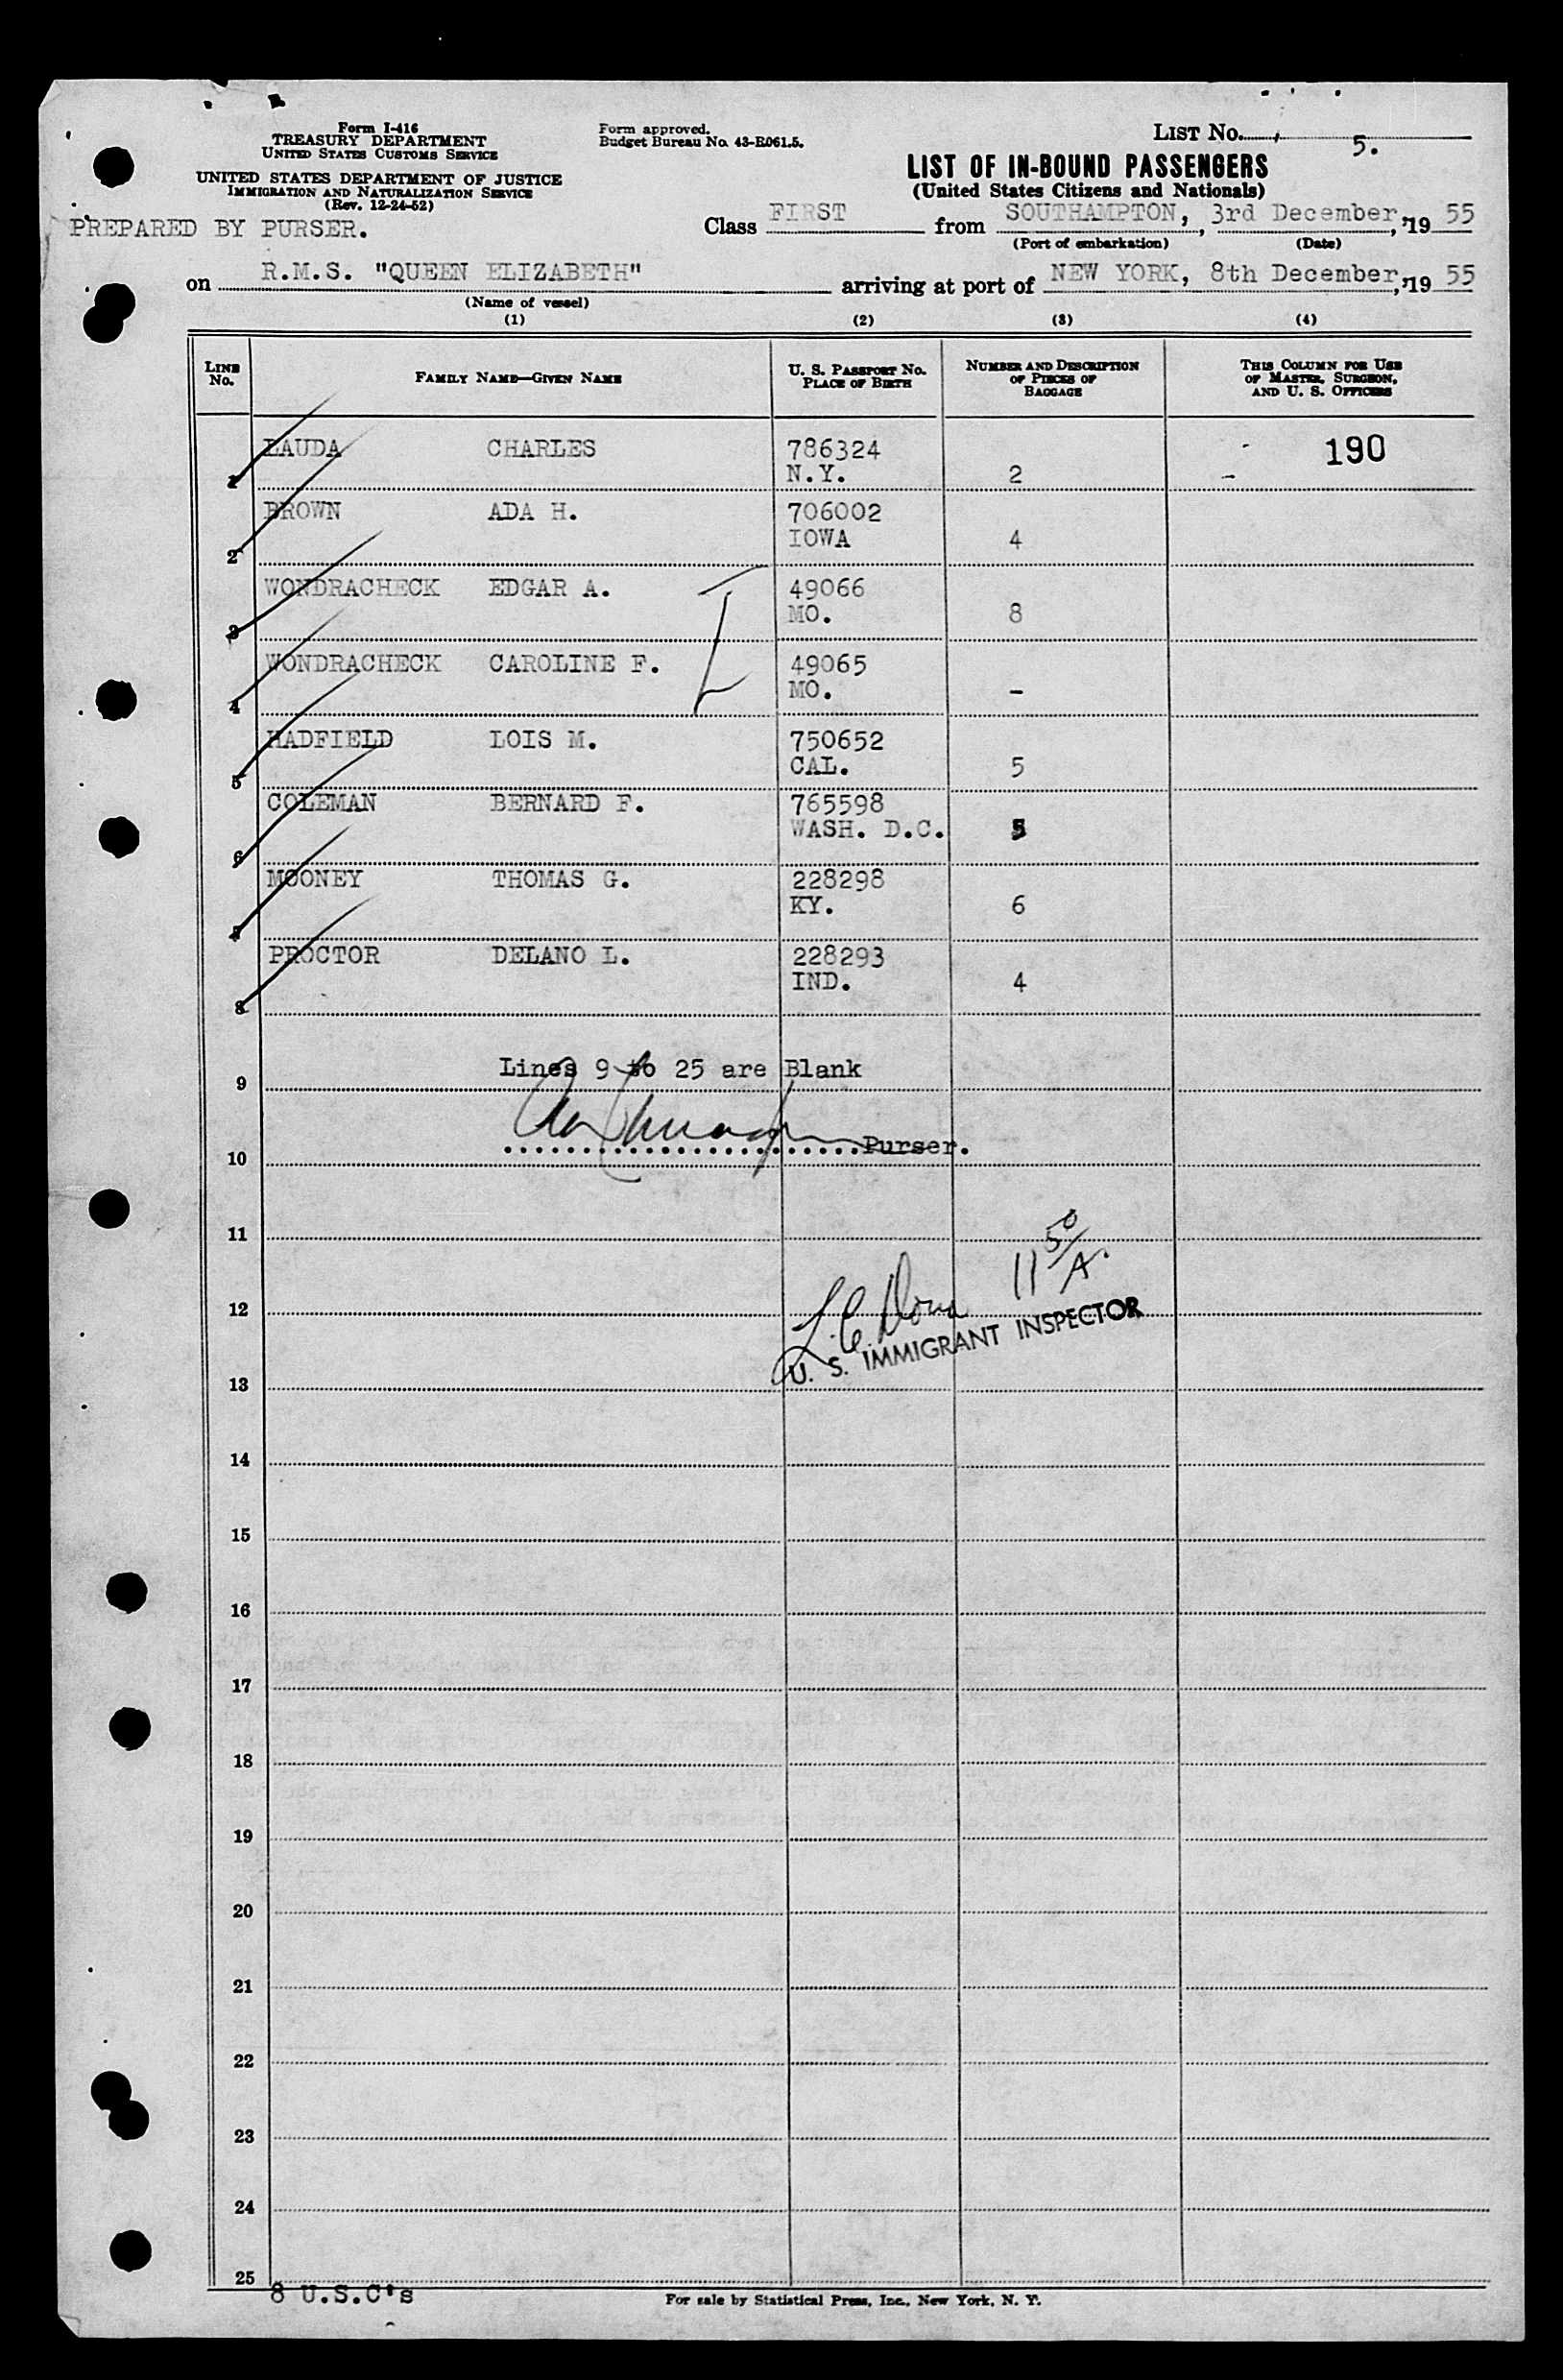 Form I-416
TREASURY DEPARTMENT
UNITED STATES CUSTOMS SERVICE
UNITED STATES DEPARTMENT OF JUSTICE
IMMIGRATION AND NATURALIZATION SERVICE
(Rev. 12-24-52)
PREPARED BY PURSER.
Form approved.
Budget Bureau No. 43-R061.5.
LIST No. 5.
LIST OF IN-BOUND PASSENGERS
(United States Citizens and Nationals)
Class FIRST from SOUTHAMPTON, 3rd December, 1955
(Port of embarkation) (Date)
on R.M.S. "QUEEN ELIZABETH" arriving at port of NEW YORK, 8th December, 1955
(Name of vessel)
(1) (2) (3) (4)
LINE No. FAMILY NAME—GIVEN NAME U. S. PASSPORT No. PLACE OF BIRTH NUMBER AND DESCRIPTION OF PIECES OF BAGGAGE THIS COLUMN FOR USE OF MASTER, SURGEON, AND U. S. OFFICERS
LAUDA CHARLES 786324 190
1 N.Y. 2 -
BROWN ADA H. 706002
2 IOWA 4
WONDRACHECK EDGAR A. 49066
3 MO. 8
WONDRACHECK CAROLINE F. 49065
4 MO. -
HADFIELD LOIS M. 750652
5 CAL. 5
COLEMAN BERNARD F. 765598
6 WASH. D.C. 5
MOONEY THOMAS G. 228298
7 KY. 6
PROCTOR DELANO L. 228293
8 IND. 4
Lines 9 to 25 are Blank
9
Purser.
10
11
11 50/A.
12
U. S. IMMIGRANT INSPECTOR
13
14
15
16
17
18
19
20
21
22
23
24
25
8 U.S.C's
For sale by Statistical Press, Inc., New York, N. Y.